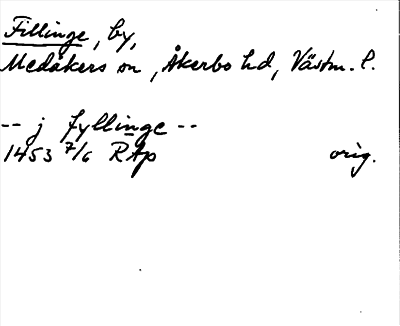 Fillinge, by,
Medåkers sn, Åkerbo hd, Västm. l.
-- j fyllinge --
1453 7/6 RAp orig.